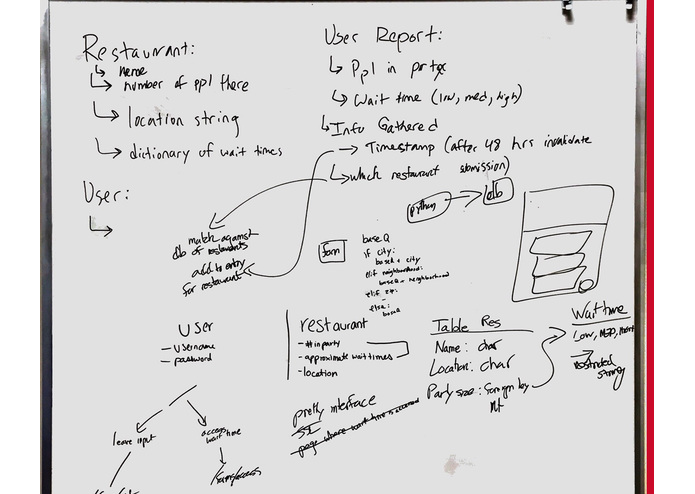 Restaurant:
↳ name
↳ number of ppl there
↳ location string
↳ dictionary of wait times
User:
User Report:
↳ Ppl in party
↳ Wait time (low, med, high)
↳ Info Gathered
→ Timestamp (after 48 hrs invalidate submission)
↳ which restaurant
match against
db of restaurants
add to entry
for restaurant
python → db
form
baseQ
if city:
baseQ + city
elif neighborhood:
baseQ + neighborhood
elif
else:
baseQ
User
- username
- password
leave input
access
wait time
restaurant
- # in party
- approximate wait times
- location
pretty interface
page where wait time is
Table Res
Name: char
Location: char
Party size: foreign key
Wait time
Low, MED,
string